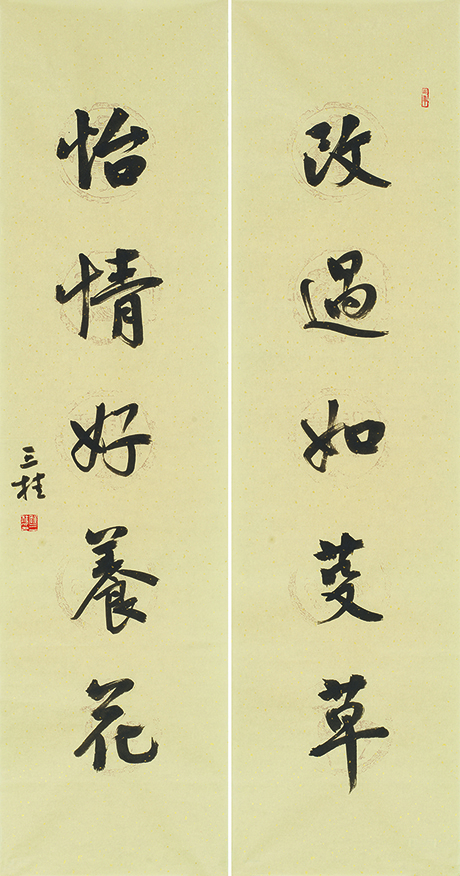 改過如芟草
怡情好養花
三桂